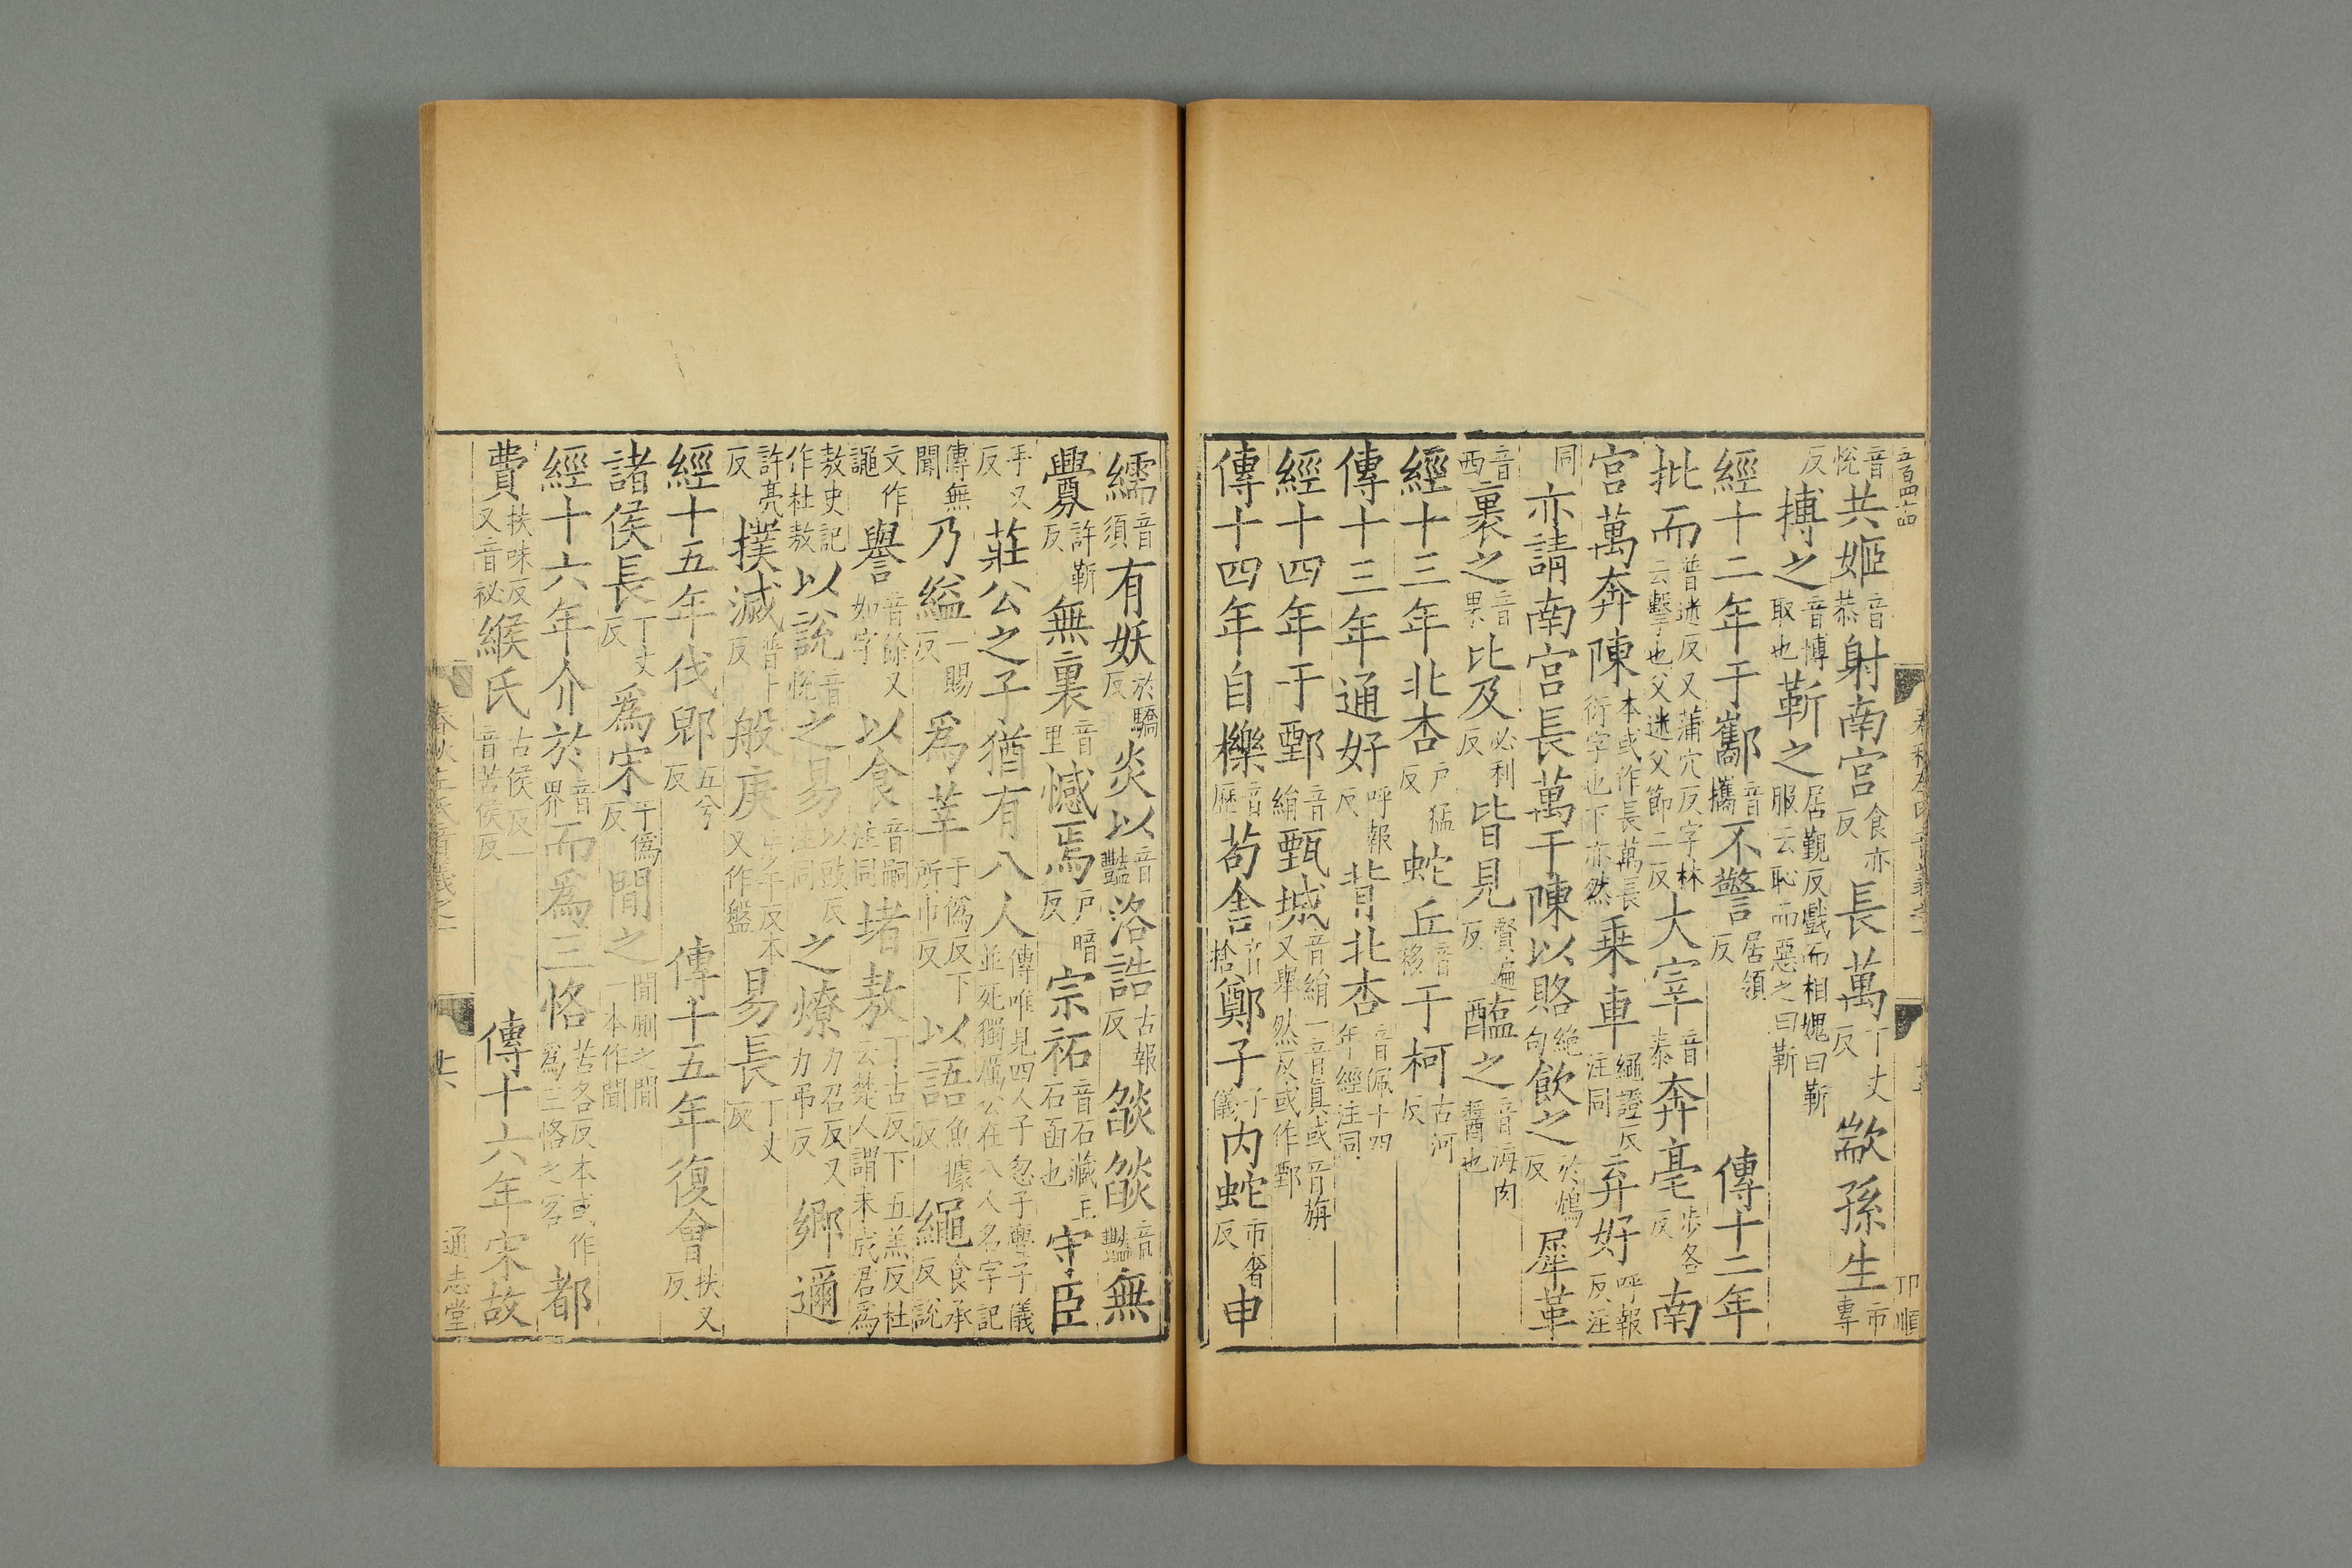 音悅共姬音恭射南宮食亦反長萬丁丈反歂孫生市專
反搏之音博取也靳之居覲反戲而相媿曰靳服云恥而惡之曰靳
經十二年于酅音攜不警居領反傳十二年
批而普迷反又蒲穴反字林云擊也父迷父節二反大宰音泰奔亳步各反南
宮萬奔陳本或作長萬長衍字也下亦然乘車繩證反注同弃好呼報反注
同亦請南宮長萬于陳以賂絕句飲之於鴆反犀革
音西裹之音果比及必利反皆見賢遍反醢之音海肉醬也
經十三年北杏戶猛反蛇丘音移于柯古河反
傳十三年通好呼報反背北杏音佩十四年經注同
經十四年于鄄音絹甄城音絹一音真或音旃又舉然反或作鄄
傳十四年自櫟音歷苟舍音捨鄭子子儀內蛇市奢反申
繻音須有妖於驕反炎以音豔洛誥古報反燄燄音豔無
釁許靳反無裏音里憾焉戶暗反宗祏音石藏主石函也守臣
手又反莊公之子猶有八人傳唯見四人子忽子亹子儀並死獨厲公在八人名字記
傳無聞乃縊一賜反爲莘于僞反下所巾反以語魚據反繩食承反說
文作譝譽音餘又如字以食音嗣注同堵敖丁古反下五羔反杜云楚人謂未成君爲
敖史記作杜敖以說音悅之易以豉反注同之燎力召反又力弔反鄉邇
許亮反撲滅普卜反般庚步干反本又作盤易長丁丈反
經十五年伐郳五兮反傳十五年復會扶又反
諸侯長丁丈反爲宋于僞反間之間廁之間一本作聞
經十六年介於音界而爲三恪苦各反本或作爲三恪之客都
費扶味反又音祕緱氏古侯反一音苦侯反傳十六年宋故
通志堂